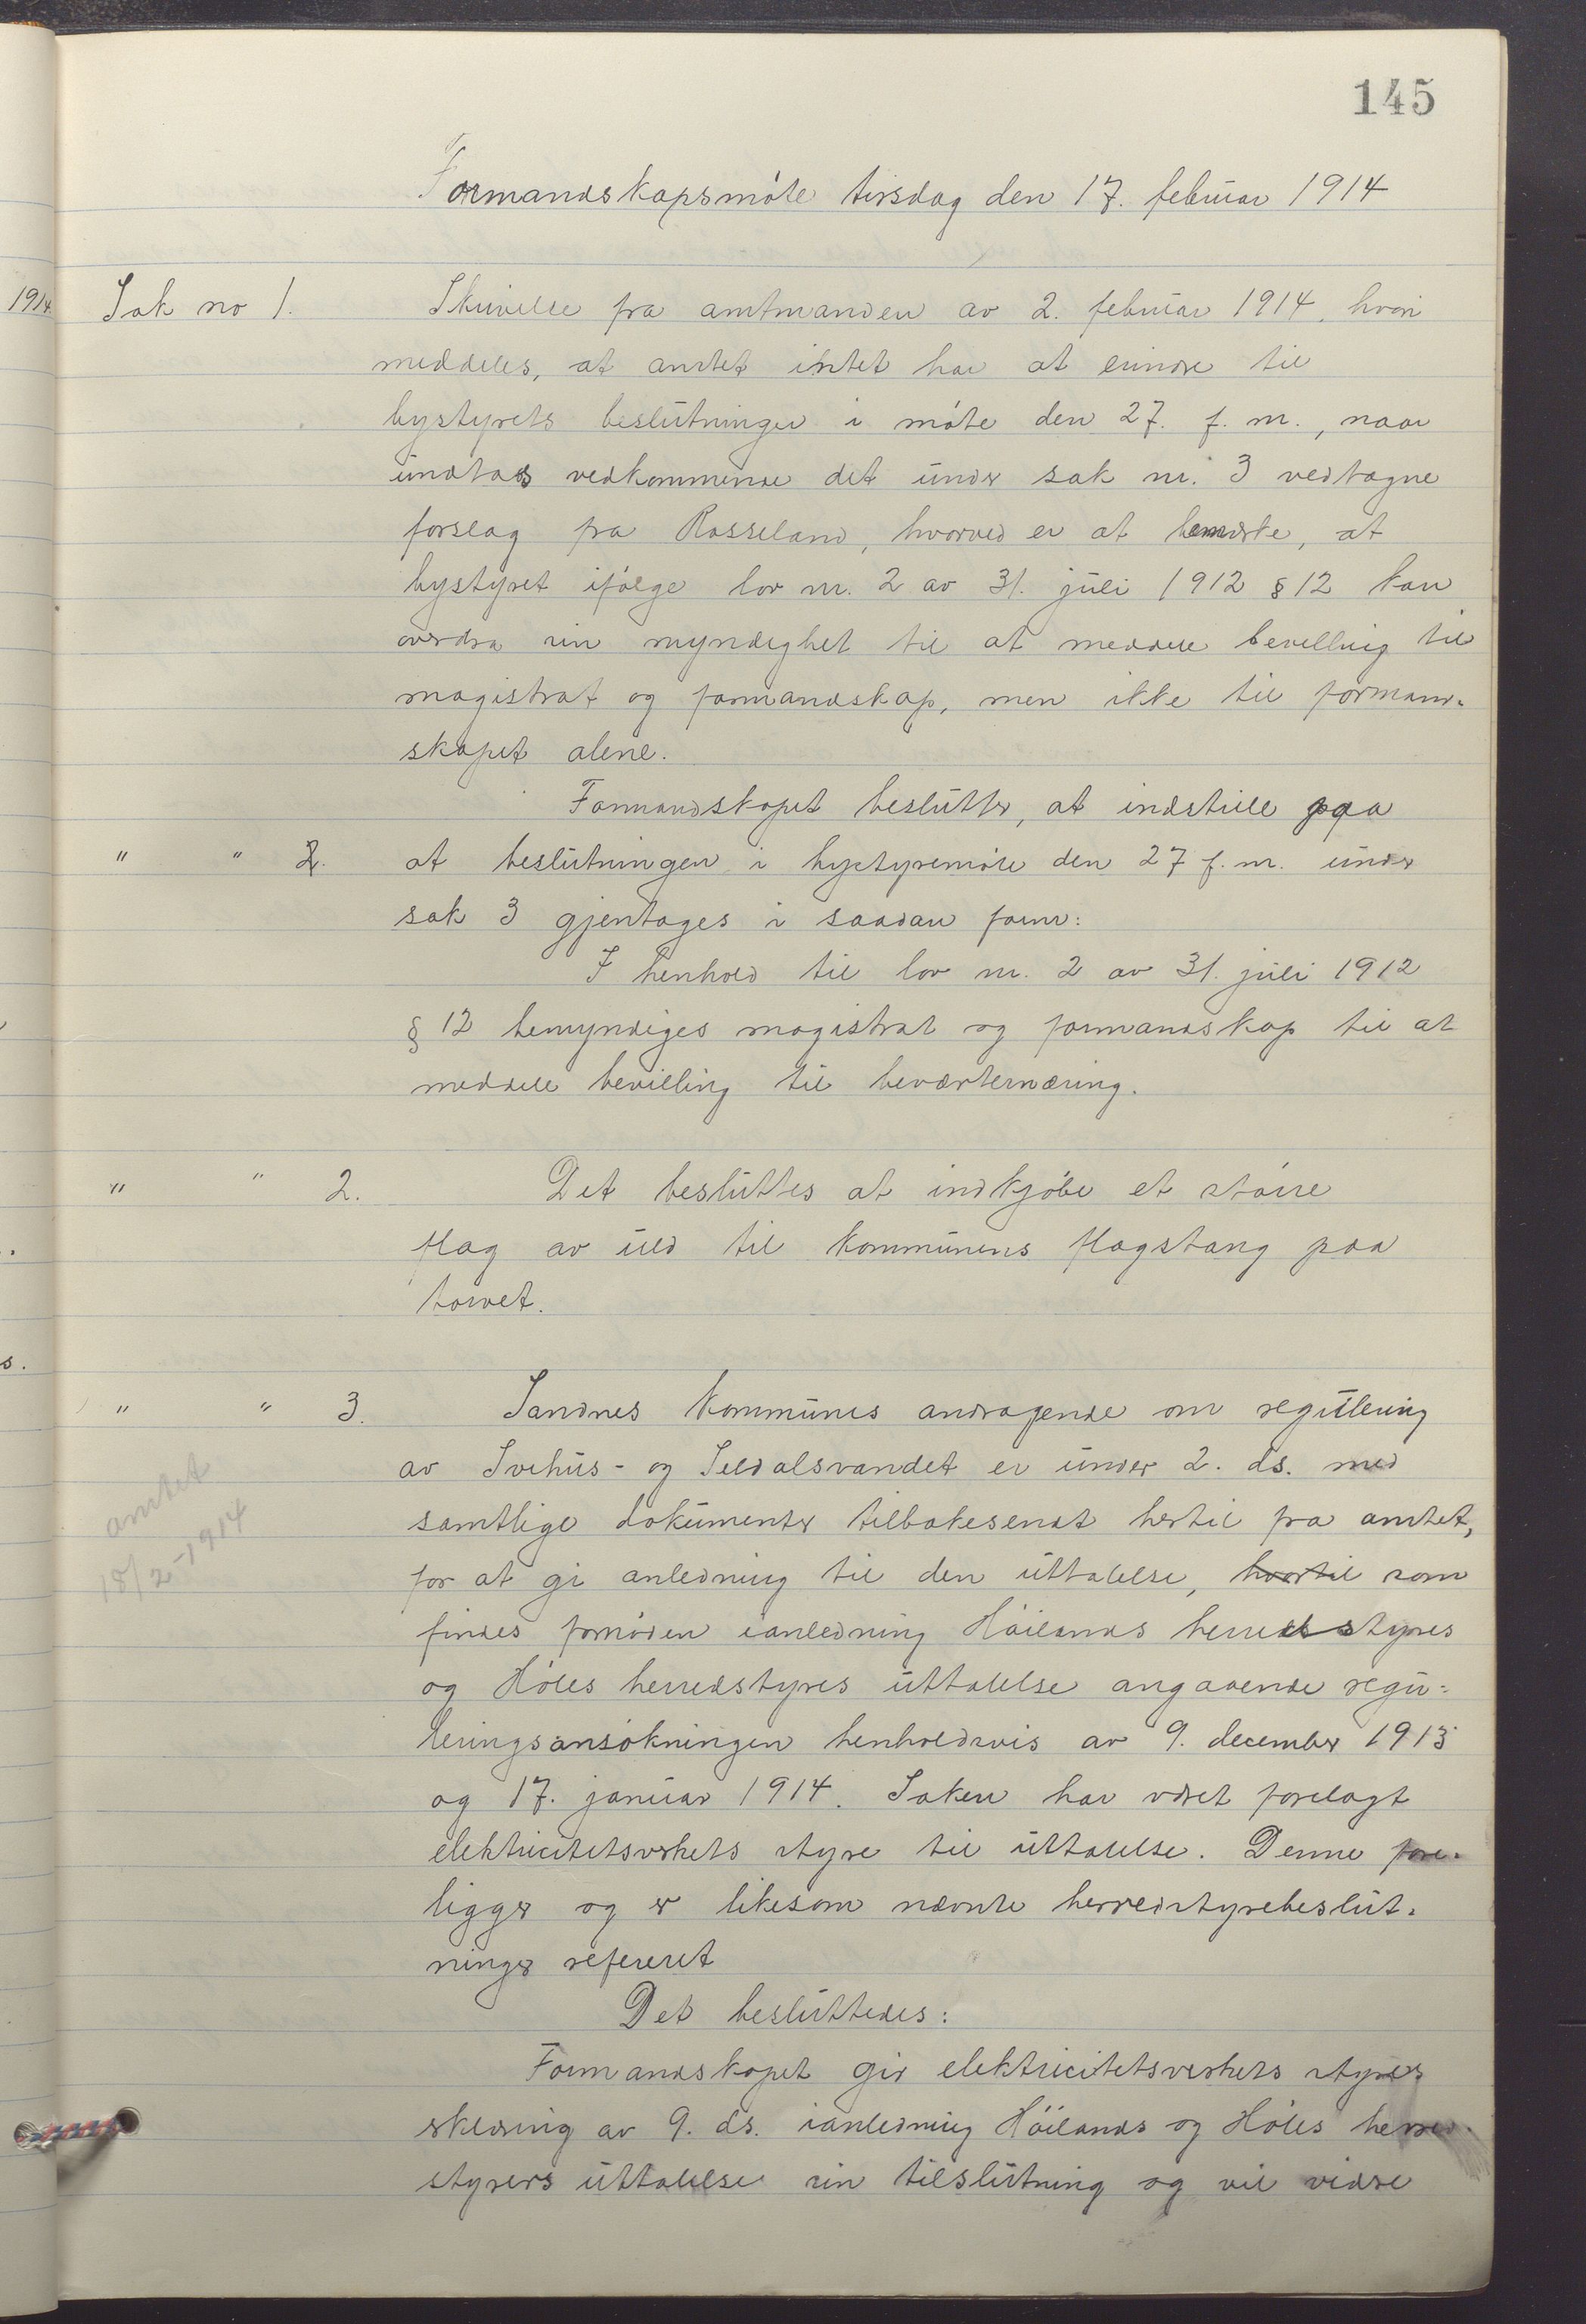 145
Formandskapsmöte tirsdag den 17. februar 1914
1914
Sak no 1. Skrivelse fra amtmanden av 2. februar 1914, hvori
meddeles, at amtet intet har at erindre til
bystyrets beslutninger i möte den 27. f. m., naar
undtas vedkommende det under sak nr. 3 vedtagne
forslag fra Rosseland, hvorved er at bemerke, at
bystyret ifölge lov nr. 2 av 31. juli 1912 § 12 kan
overdra sin myndighet til at meddele bevilling til
magistrat og formandskap, men ikke til formand-
skapet alene.
Formandskapet beslutter, at indstille paa
" " 2. at beslutningen i bystyremöte den 27 f. m. under
sak 3 gjentages i saadan form:
I henhold til lov nr. 2 av 31. juli 1912
§ 12 bemyndiges magistrat og formandskap til at
meddele bevilling til beværternæring.
" " 2. Det besluttes at indkjöbe et större
flag av uld til kommunens flagstang paa
torvet.
s.
" " 3. Sandnes kommunes andragende om regulering
av Svihus- og Seldalsvandet er under 2. ds. med
samtlige dokumenter tilbakesendt hertil fra amtet,
for at gi anledning til den uttalelse, hvortil som
findes fornöden ianledning Höilands herredsstyres
og Höles herredstyres uttalelse angaaende regu-
leringsansökningen henholdsvis av 9. december 1913
og 17. januar 1914. Saken har været forelagt
elektricitetsverkets styre til uttalelse. Denne fore-
ligger og er likesom nævnte herredstyrebeslut-
ninger refereret
amtet
18/2-1914
Det besluttedes:
Formandskapet gir elektricitetsverkets styres
erklæring av 9. ds. ianledning Höilands og Höles herred-
styrers uttalelse sin tilslutning og vil videre